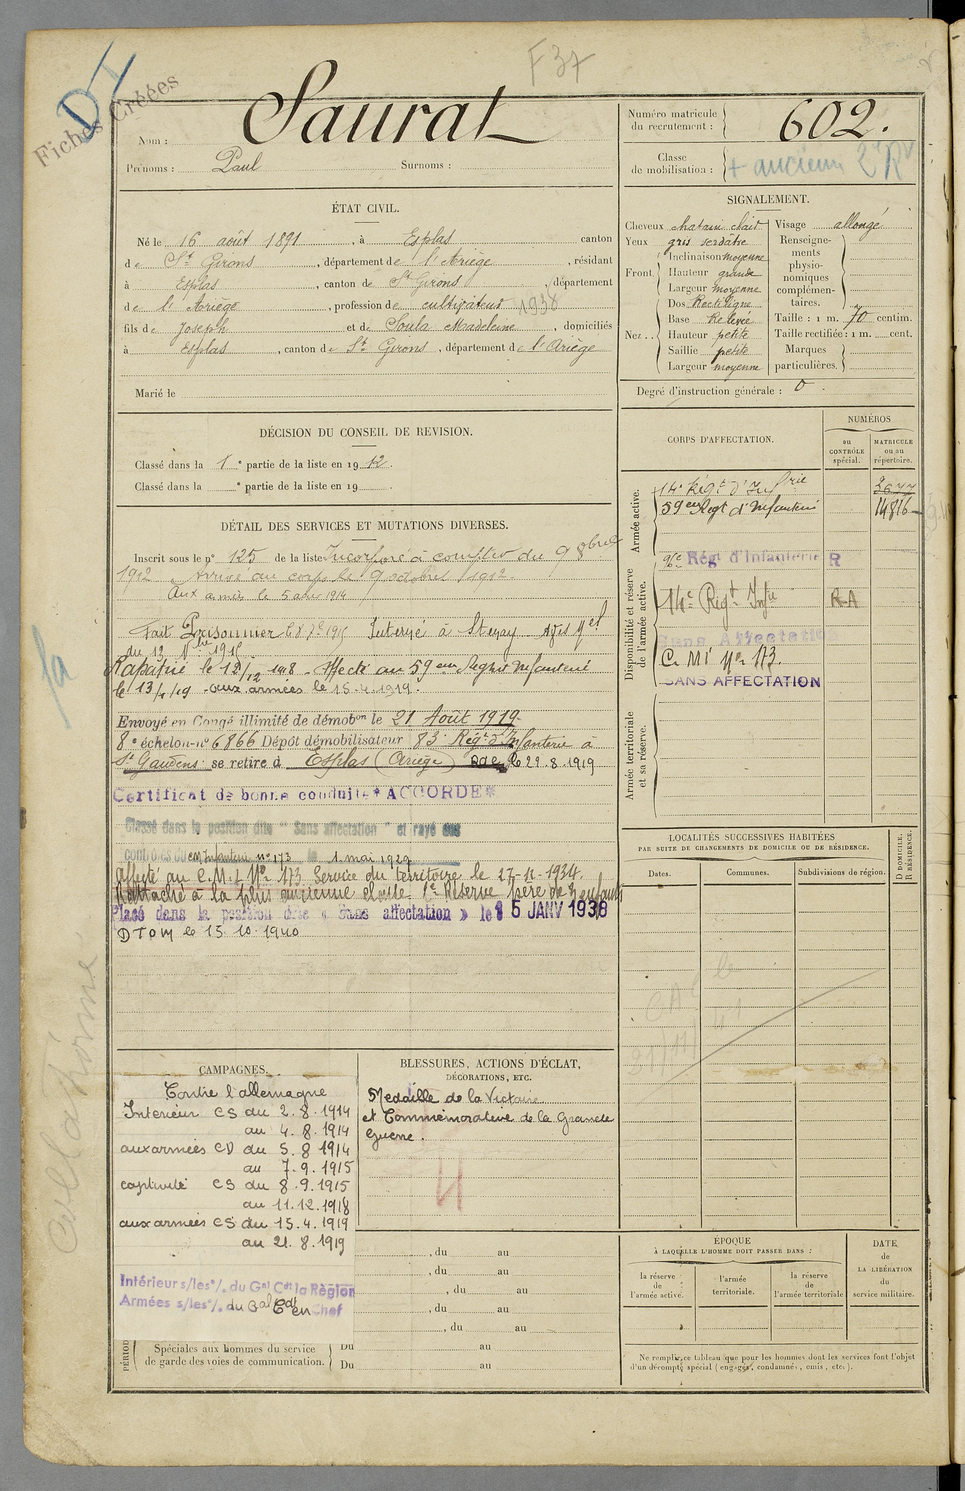 F37
D
Fiches Créées
Nom : Saurat
Prénoms : Paul Surnoms :
Numéro matricule du recrutement : 602.
Classe de mobilisation : + ancienne 2e Rv
ÉTAT CIVIL.
Né le 16 août 1891, à Esplas canton
de St Girons, département de l'Ariège, résidant
à Esplas, canton de St Girons, département
de l'Ariège, profession de cultivateur 1938
fils de Joseph et de Soula Madeleine, domiciliés
à Esplas, canton de St Girons, département de l'Ariège
Marié le
SIGNALEMENT.
Cheveux chatain clair
Yeux gris verdâtre
Front. Inclinaison moyenne
Hauteur grande
Largeur moyenne
Nez . . Dos Rectiligne
Base Relevée
Hauteur petite
Saillie petite
Largeur moyenne
Visage allongé
Renseignements physionomiques complémentaires.
Taille : 1 m. 70 centim.
Taille rectifiée : 1 m. cent.
Marques particulières.
Degré d'instruction générale : 0.
DÉCISION DU CONSEIL DE REVISION.
Classé dans la 1e partie de la liste en 1912.
Classé dans la e partie de la liste en 19 .
DÉTAIL DES SERVICES ET MUTATIONS DIVERSES.
Inscrit sous le n° 125 de la liste Incorporé à compter du 9 8bre
1912 Arrivé au corps le 9 octobre 1912.
Aux armées le 5 août 1914
Fait Prisonnier le 8 7e 1915 Interné à Stenay Avis Mel
du 12 Nbre 1915.
Rapatrié le 12/12 1918 - Affecté au 59eme Regmt Infanterie
le 13/1/19 - aux armées le 15.4.1919.
Envoyé en Congé illimité de démobon le 21 Août 1919
8e échelon n° 6866 Dépôt démobilisateur 83e Régt d'Infanterie à
St Gaudens se retire à Esplas (Ariège) le 22.8.1919
Certificat de bonne conduite * ACCORDE *
Classé dans la position dite " Sans affectation " et rayé des
contrôles du Infanterie n° 173 le 1 mai 1929
Affecté au C.M.I. N° 173 Service du territoire le 27-11-1934.
Rattaché à la plus ancienne classe 2e Réserve père de enfants
Placé dans la position dite « Sans affectation » le 15 JANV 1938
DTOM le 15.10.1940
CORPS D'AFFECTATION.
NUMÉROS
au CONTRÔLE spécial.
MATRICULE ou au répertoire.
Armée active.
14e Régt d'Infrie 2677
59eme Regt d'Infanterie 14816
Disponibilité et réserve de l'armée active.
Régt d'Infanterie R
14e Régt Infie R-A
Sans Affectation
C. MI N° 173.
SANS AFFECTATION
Armée territoriale et sa réserve.
LOCALITÉS SUCCESSIVES HABITÉES
PAR SUITE DE CHANGEMENTS DE DOMICILE OU DE RÉSIDENCE.
Dates. Communes. Subdivisions de région. D DOMICILE. R RÉSIDENCE.
CAMPAGNES.
Contre l'allemagne
Interieur CS du 2.8.1914
au 4.8.1914
aux armées CD du 5.8 1914
au 7.9.1915
captivité CS du 8.9.1915
au 11.12.1918
aux armées CS du 15.4.1919
au 21.8.1919
Intérieur s/les °/. du Gal Cdt la Région
Armées s/les °/. du Gal Cdt en Chef
BLESSURES, ACTIONS D'ÉCLAT,
DÉCORATIONS, ETC.
Medaille de la Victoire
et Commémorative de la Grande
Guerre.
, du au
, du au
, du au
, du au
, du au
Spéciales aux hommes du service
de garde des voies de communication.
Du au
Du au
ÉPOQUE
À LAQUELLE L'HOMME DOIT PASSER DANS :
la réserve de l'armée active. l'armée territoriale. la réserve de l'armée territoriale
DATE de LA LIBÉRATION du service militaire.
Ne remplir ce tableau que pour les hommes dont les services font l'objet
d'un décompte spécial (engagés, condamnés, omis, etc.).